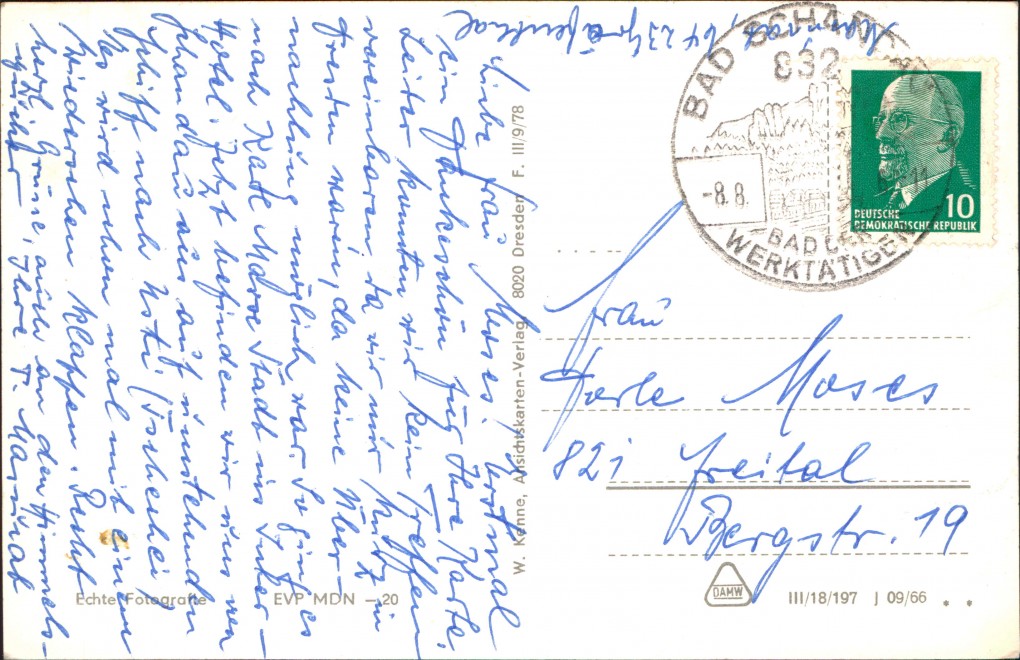 Marquat, 6423 Gräfenthal
Liebe Frau Moses! Erstmal
ein Dankeschön für Ihre Karte.
Leider konnten wir kein Treffen
vereinbaren da wir nur kurz in
Dresden waren, da keine Über-
nachtung möglich war. So ging es
nach Karl Marx Stadt ins Inter-
Hotel. Jetzt befinden wir uns von
Schandau aus auf
Schiff nach Usti (Tschechei)
Es wird schon mal mit einem
Wiedersehen klappen. Recht
herzl. Grüsse, auch an den
Ihre T. Marquat
W. Kenne, Ansichtskarten-Verlag, 8020 Dresden F. III/9/78
BAD SCHANDAU
832
-8.8.
BAD DER
WERKTÄTIGEN
10
DEUTSCHE
DEMOKRATISCHE REPUBLIK
Frau
Perle Moses
821 Freital
Bergstr. 19
Echte Fotografie EVP MDN -20
DAMW
III/18/197 J 09/66